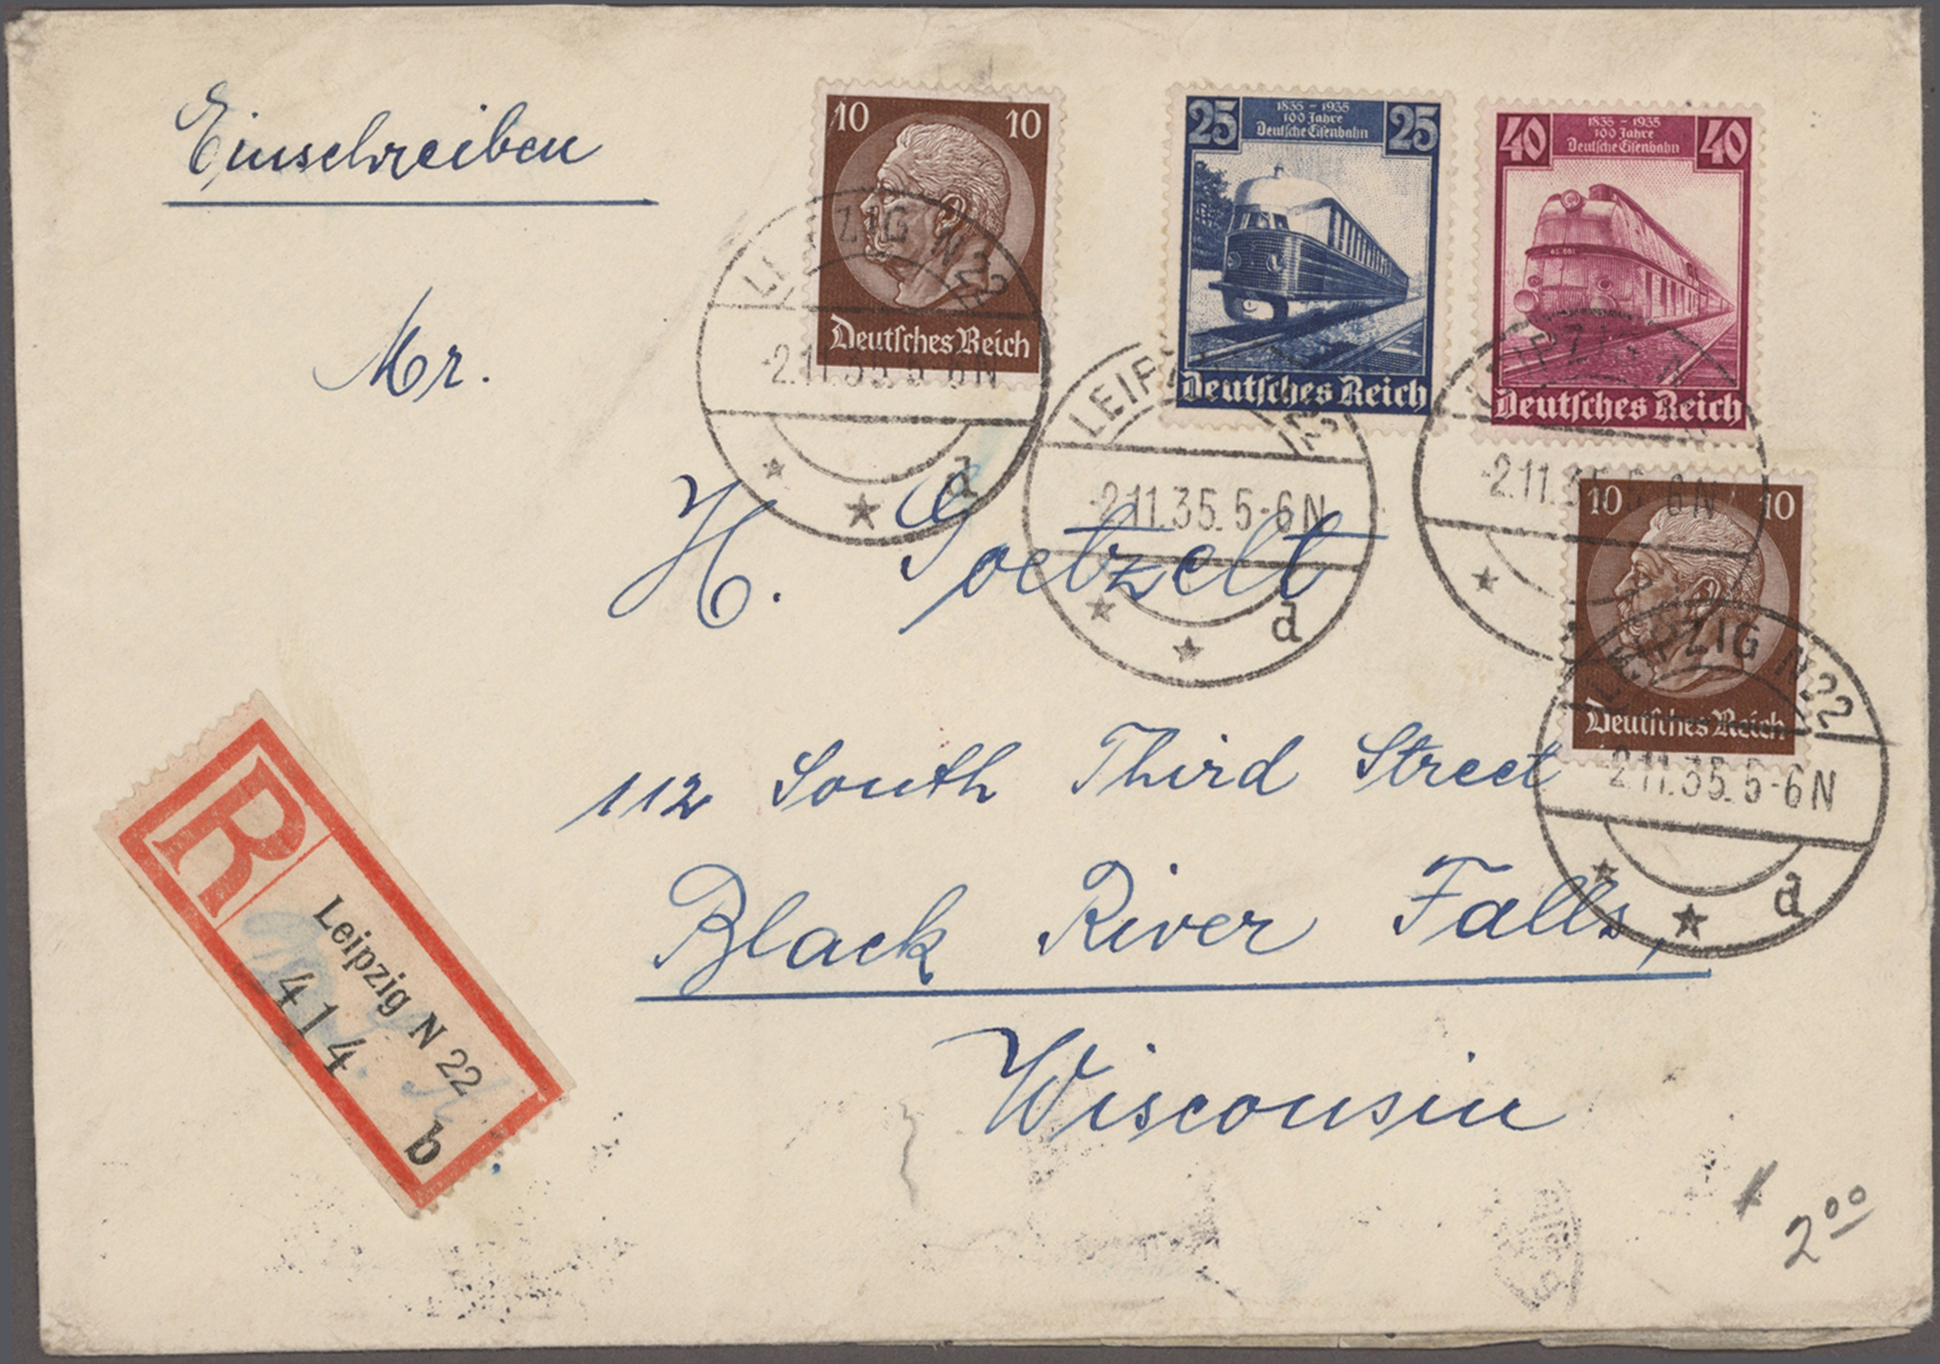 Einschreiben
10 10
Deutsches Reich
25 25
1835 - 1935
100 Jahre
Deutsche Eisenbahn
Deutsches Reich
40 40
1835 - 1935
100 Jahre
Deutsche Eisenbahn
Deutsches Reich
LEIPZIG N22
-2.11.35.5-6N
d
LEIPZIG N22
-2.11.35.5-6N
d
LEIPZIG N
-2.11.35.5-6N
10 10
Deutsches Reich
LEIPZIG N22
-2.11.35.5-6N
d
Mr.
H. Goetzelt
112 South Third Street
Black River Falls,
Wisconsin
R
Leipzig N 22
414
b
2 00